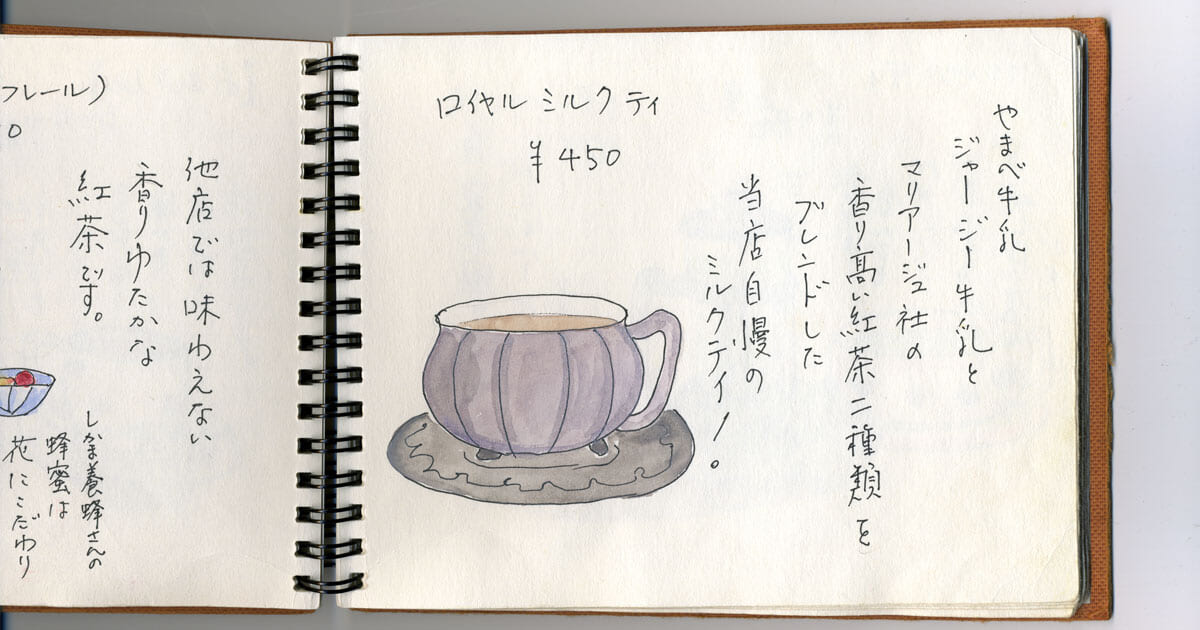 フレール)
0
他店では味わえない
香りゆたかな
紅茶です。
しかま養蜂さんの
蜂蜜は
花にこだわり
ロイヤル ミルク ティ
¥450
やまべ牛乳
ジャージー牛乳と
マリアージュ社の
香り高い紅茶二種類を
ブレンドした
当店自慢の
ミルクティ!。